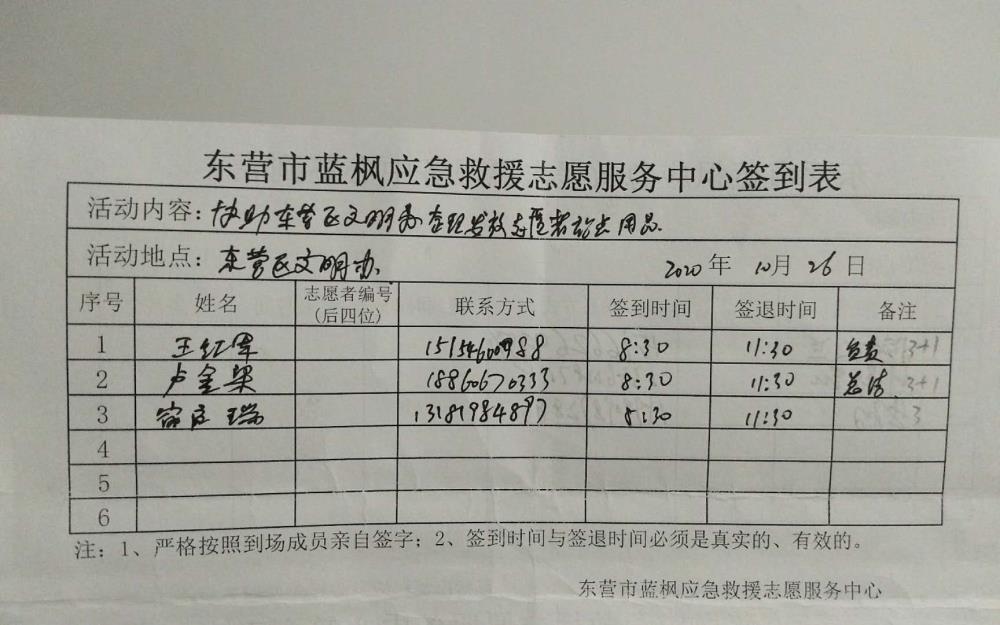 东营市蓝枫应急救援志愿服务中心签到表
活动内容：协助东营区文明办整理发放志愿者 用品
活动地点：东营区文明办 2020年 10月 26日
序号 姓名 志愿者编号（后四位） 联系方式 签到时间 签退时间 备注
1 王红军 8:30 11:30 负责 3+1
2 卢金梁 18860670333 8:30 11:30 总结 3+1
3 瑞 13181984897 8:30 11:30 3
4
5
6
注：1、严格按照到场成员亲自签字；2、签到时间与签退时间必须是真实的、有效的。
东营市蓝枫应急救援志愿服务中心